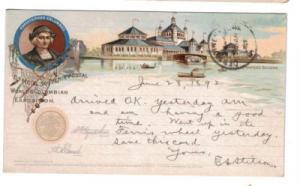 CHRISTOPHER COLUMBUS
OFFICIAL SOUVENIR POSTAL
WORLD'S COLUMBIAN
EXPOSITION.
June 28, 1893
Arrived O.K. yesterday am
and am having a good
time. Went up in the
Ferris wheel yesterday.
Save this card
Yours,